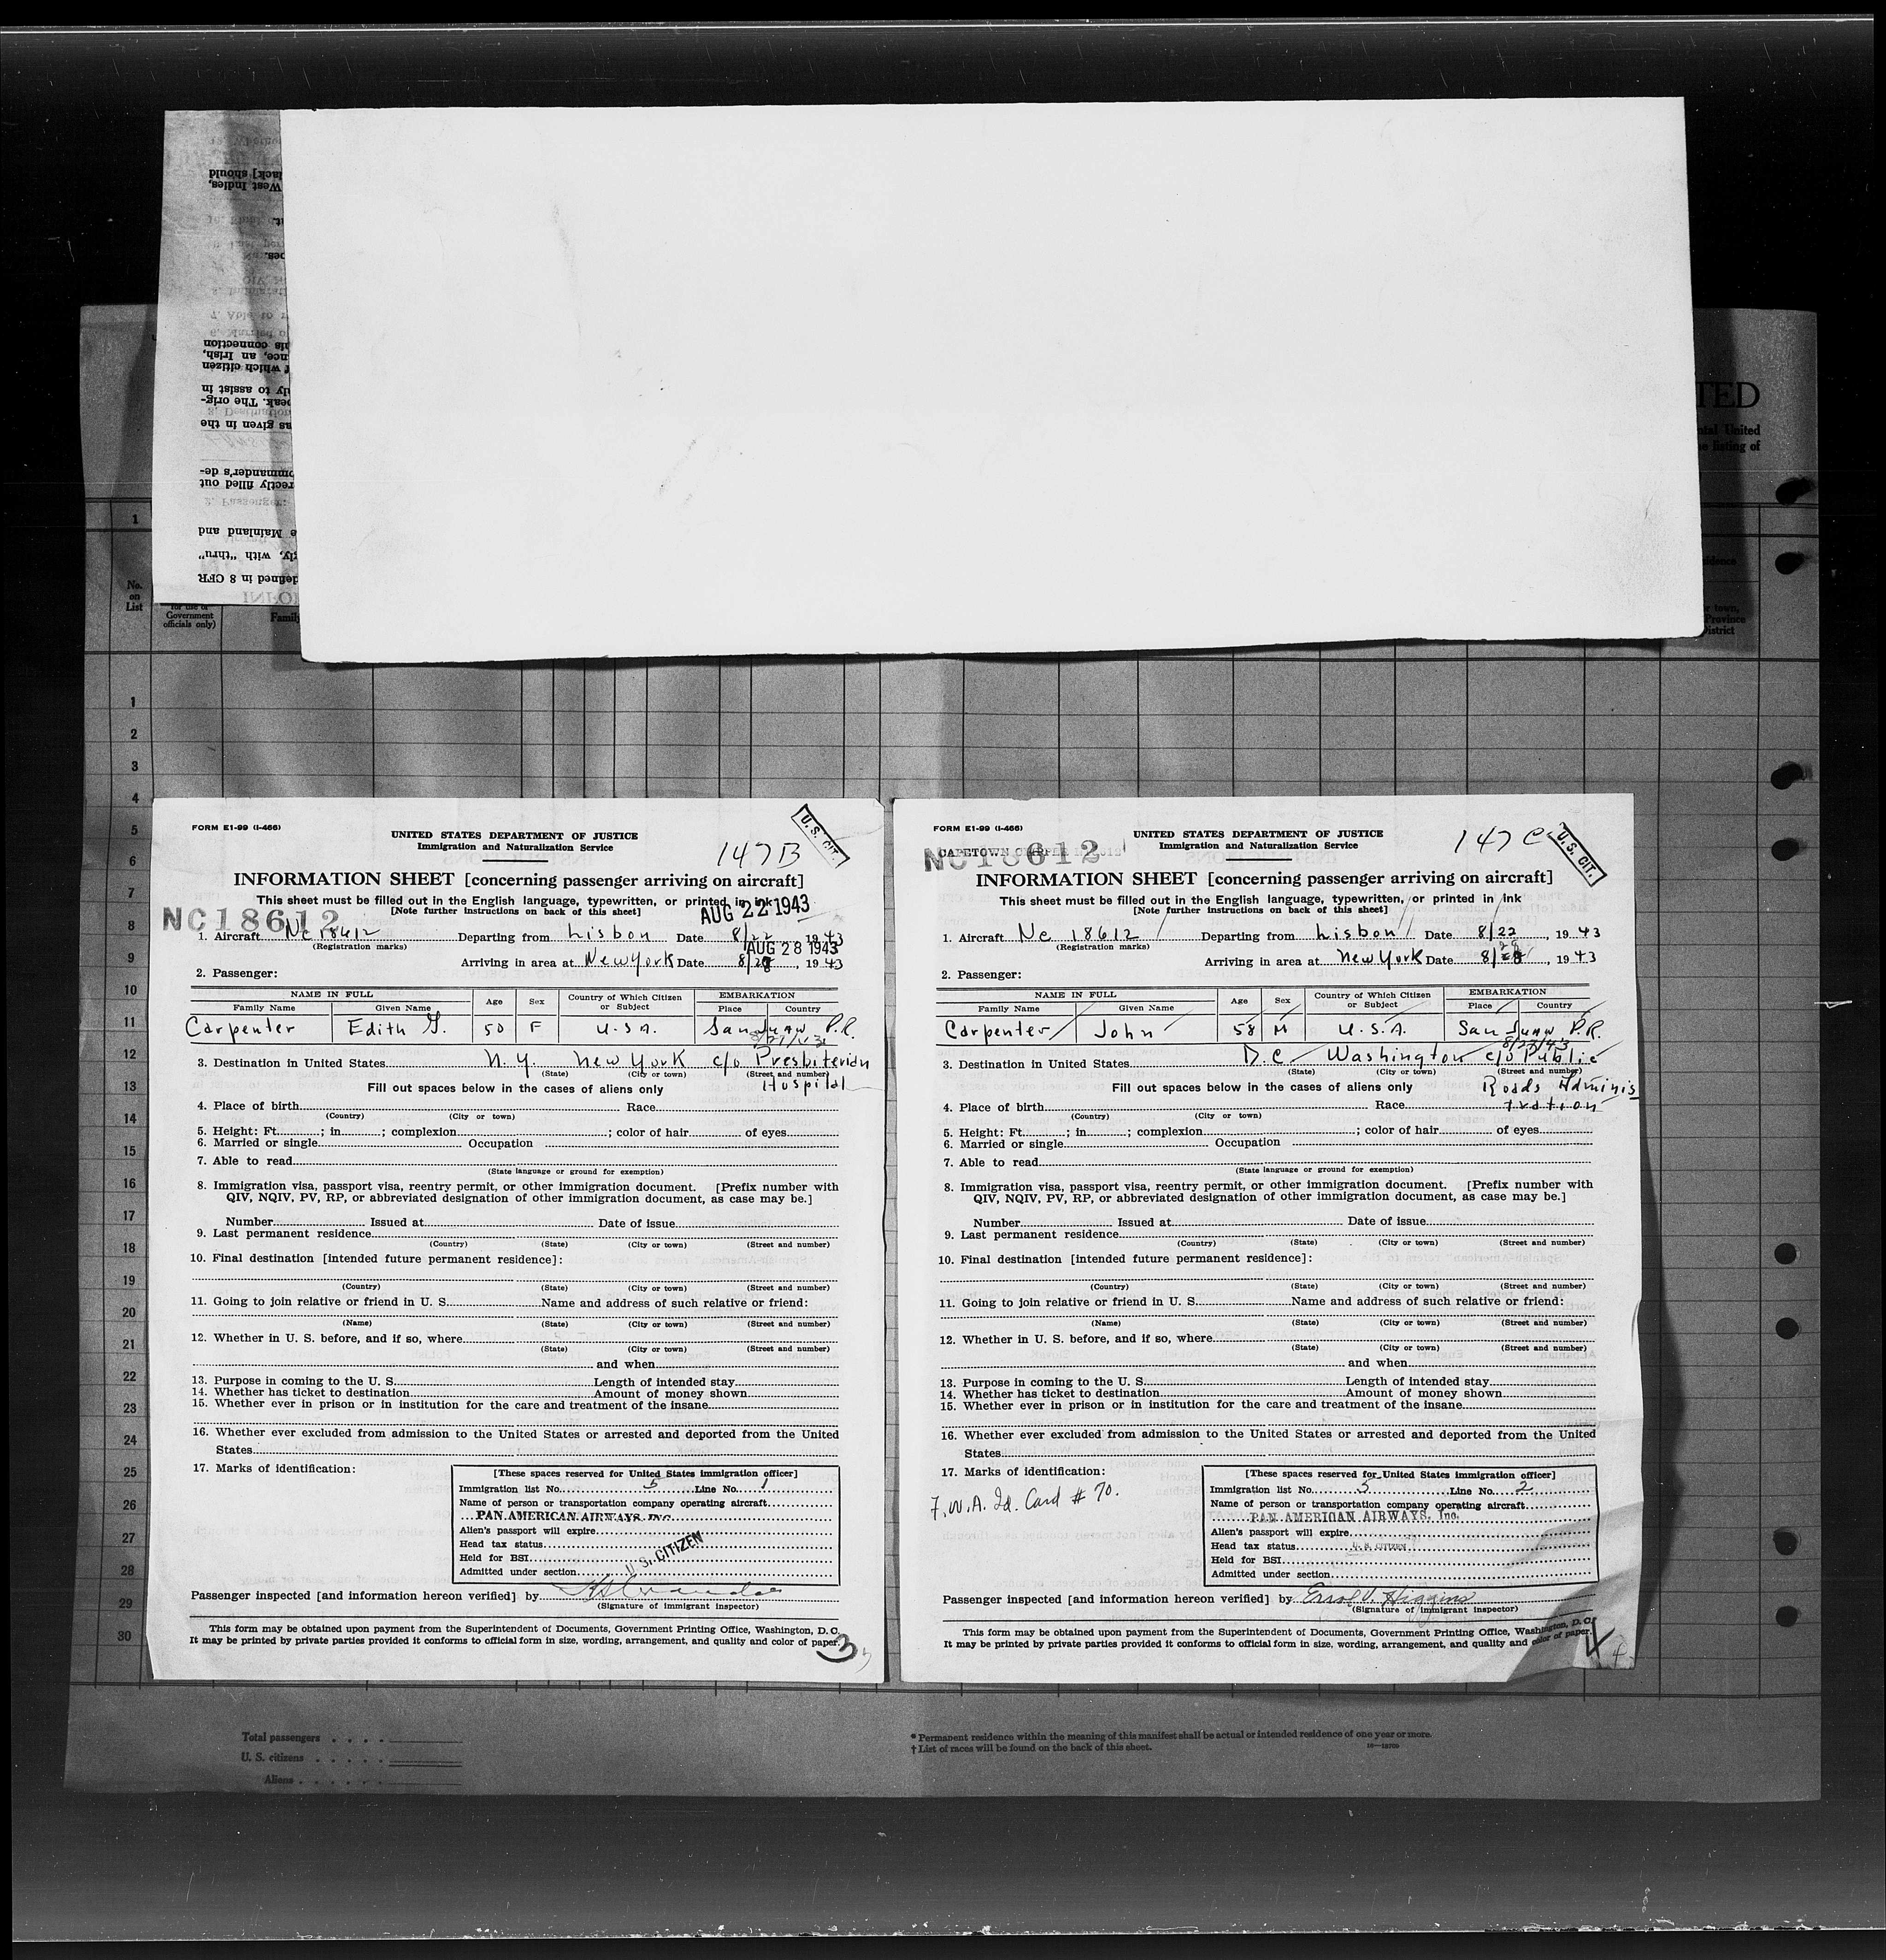 lack] should
West Indies,
pes.
his connection
nce, an Irish,
f which citizen
ly to assist in
peak. The orig-
as given in the
ommander's de-
rectly filled out
e Mainland and
gly, with "thru"
defined in 8 CFR
TED
ntal United
e listing of
1
No.
on
List
for use of
Government
officials only)
Family
idence
r town,
Province
District
1
2
3
4
5
6
7
8
9
10
11
12
13
14
15
16
17
18
19
20
21
22
23
24
25
26
27
28
29
30
FORM E1-99 (I-466)
UNITED STATES DEPARTMENT OF JUSTICE
Immigration and Naturalization Service
147B
U. S. CIT.
INFORMATION SHEET [concerning passenger arriving on aircraft]
This sheet must be filled out in the English language, typewritten, or printed in ink
[Note further instructions on back of this sheet]
AUG 22 1943
NC18612
1. Aircraft Nc 18612 Departing from Lisbon Date 8/22, 1943
(Registration marks)
AUG 28 1943
Arriving in area at New York Date 8/28, 1943
2. Passenger:
NAME IN FULL Age Sex Country of Which Citizen or Subject EMBARKATION
Family Name Given Name Place Country
Carpenter Edith G. 50 F U.S.A. San Juan P.R.
3. Destination in United States N.Y. New York c/o Presbiterian
(State) (City or town) (Street and number)
Hospital
Fill out spaces below in the cases of aliens only
4. Place of birth Race
(Country) (City or town)
5. Height: Ft. ; in ; complexion ; color of hair of eyes
6. Married or single Occupation
7. Able to read
(State language or ground for exemption)
8. Immigration visa, passport visa, reentry permit, or other immigration document. [Prefix number with
QIV, NQIV, PV, RP, or abbreviated designation of other immigration document, as case may be.]
Number Issued at Date of issue
9. Last permanent residence
(Country) (State) (City or town) (Street and number)
10. Final destination [intended future permanent residence]:
(Country) (State) (City or town) (Street and number)
11. Going to join relative or friend in U. S. Name and address of such relative or friend:
(Name) (State) (City or town) (Street and number)
12. Whether in U. S. before, and if so, where
(State) (City or town) (Street and number)
and when
13. Purpose in coming to the U. S. Length of intended stay
14. Whether has ticket to destination Amount of money shown
15. Whether ever in prison or in institution for the care and treatment of the insane
16. Whether ever excluded from admission to the United States or arrested and deported from the United
States
17. Marks of identification:
[These spaces reserved for United States immigration officer]
Immigration list No. 5 Line No. 1
Name of person or transportation company operating aircraft
PAN AMERICAN AIRWAYS, INC.
Alien's passport will expire
Head tax status
Held for BSI
U. S. CITIZEN
Admitted under section
Passenger inspected [and information hereon verified] by
(Signature of immigrant inspector)
This form may be obtained upon payment from the Superintendent of Documents, Government Printing Office, Washington, D. C.
It may be printed by private parties provided it conforms to official form in size, wording, arrangement, and quality and color of paper.
3
FORM E1-99 (I-466)
UNITED STATES DEPARTMENT OF JUSTICE
Immigration and Naturalization Service
147 C
U. S. CIT.
CAPETOWN CLIPPER
NC18612
INFORMATION SHEET [concerning passenger arriving on aircraft]
This sheet must be filled out in the English language, typewritten, or printed in ink
[Note further instructions on back of this sheet]
1. Aircraft Nc 18612 Departing from Lisbon Date 8/22, 1943
(Registration marks)
Arriving in area at New York Date 8/28, 1943
2. Passenger:
NAME IN FULL Age Sex Country of Which Citizen or Subject EMBARKATION
Family Name Given Name Place Country
Carpenter John 58 M U.S.A. San Juan P.R.
8/27/43
3. Destination in United States D.C. Washington c/o Public
(State) (City or town) (Street and number)
Fill out spaces below in the cases of aliens only Roads Adminis
4. Place of birth Race tration
(Country) (City or town)
5. Height: Ft. ; in ; complexion ; color of hair of eyes
6. Married or single Occupation
7. Able to read
(State language or ground for exemption)
8. Immigration visa, passport visa, reentry permit, or other immigration document. [Prefix number with
QIV, NQIV, PV, RP, or abbreviated designation of other immigration document, as case may be.]
Number Issued at Date of issue
9. Last permanent residence
(Country) (State) (City or town) (Street and number)
10. Final destination [intended future permanent residence]:
(Country) (State) (City or town) (Street and number)
11. Going to join relative or friend in U. S. Name and address of such relative or friend:
(Name) (State) (City or town) (Street and number)
12. Whether in U. S. before, and if so, where
(State) (City or town) (Street and number)
and when
13. Purpose in coming to the U. S. Length of intended stay
14. Whether has ticket to destination Amount of money shown
15. Whether ever in prison or in institution for the care and treatment of the insane
16. Whether ever excluded from admission to the United States or arrested and deported from the United
States
17. Marks of identification:
F.W.A. Id. Card # 70.
[These spaces reserved for United States immigration officer]
Immigration list No. 5 Line No. 2
Name of person or transportation company operating aircraft
PAN AMERICAN AIRWAYS, Inc.
Alien's passport will expire
Head tax status U. S. CITIZEN
Held for BSI
Admitted under section
Passenger inspected [and information hereon verified] by Errol V. Higgins
(Signature of immigrant inspector)
This form may be obtained upon payment from the Superintendent of Documents, Government Printing Office, Washington, D. C.
It may be printed by private parties provided it conforms to official form in size, wording, arrangement, and quality and color of paper.
4
4
Total passengers
U. S. citizens
Aliens
* Permanent residence within the meaning of this manifest shall be actual or intended residence of one year or more.
† List of races will be found on the back of this sheet.